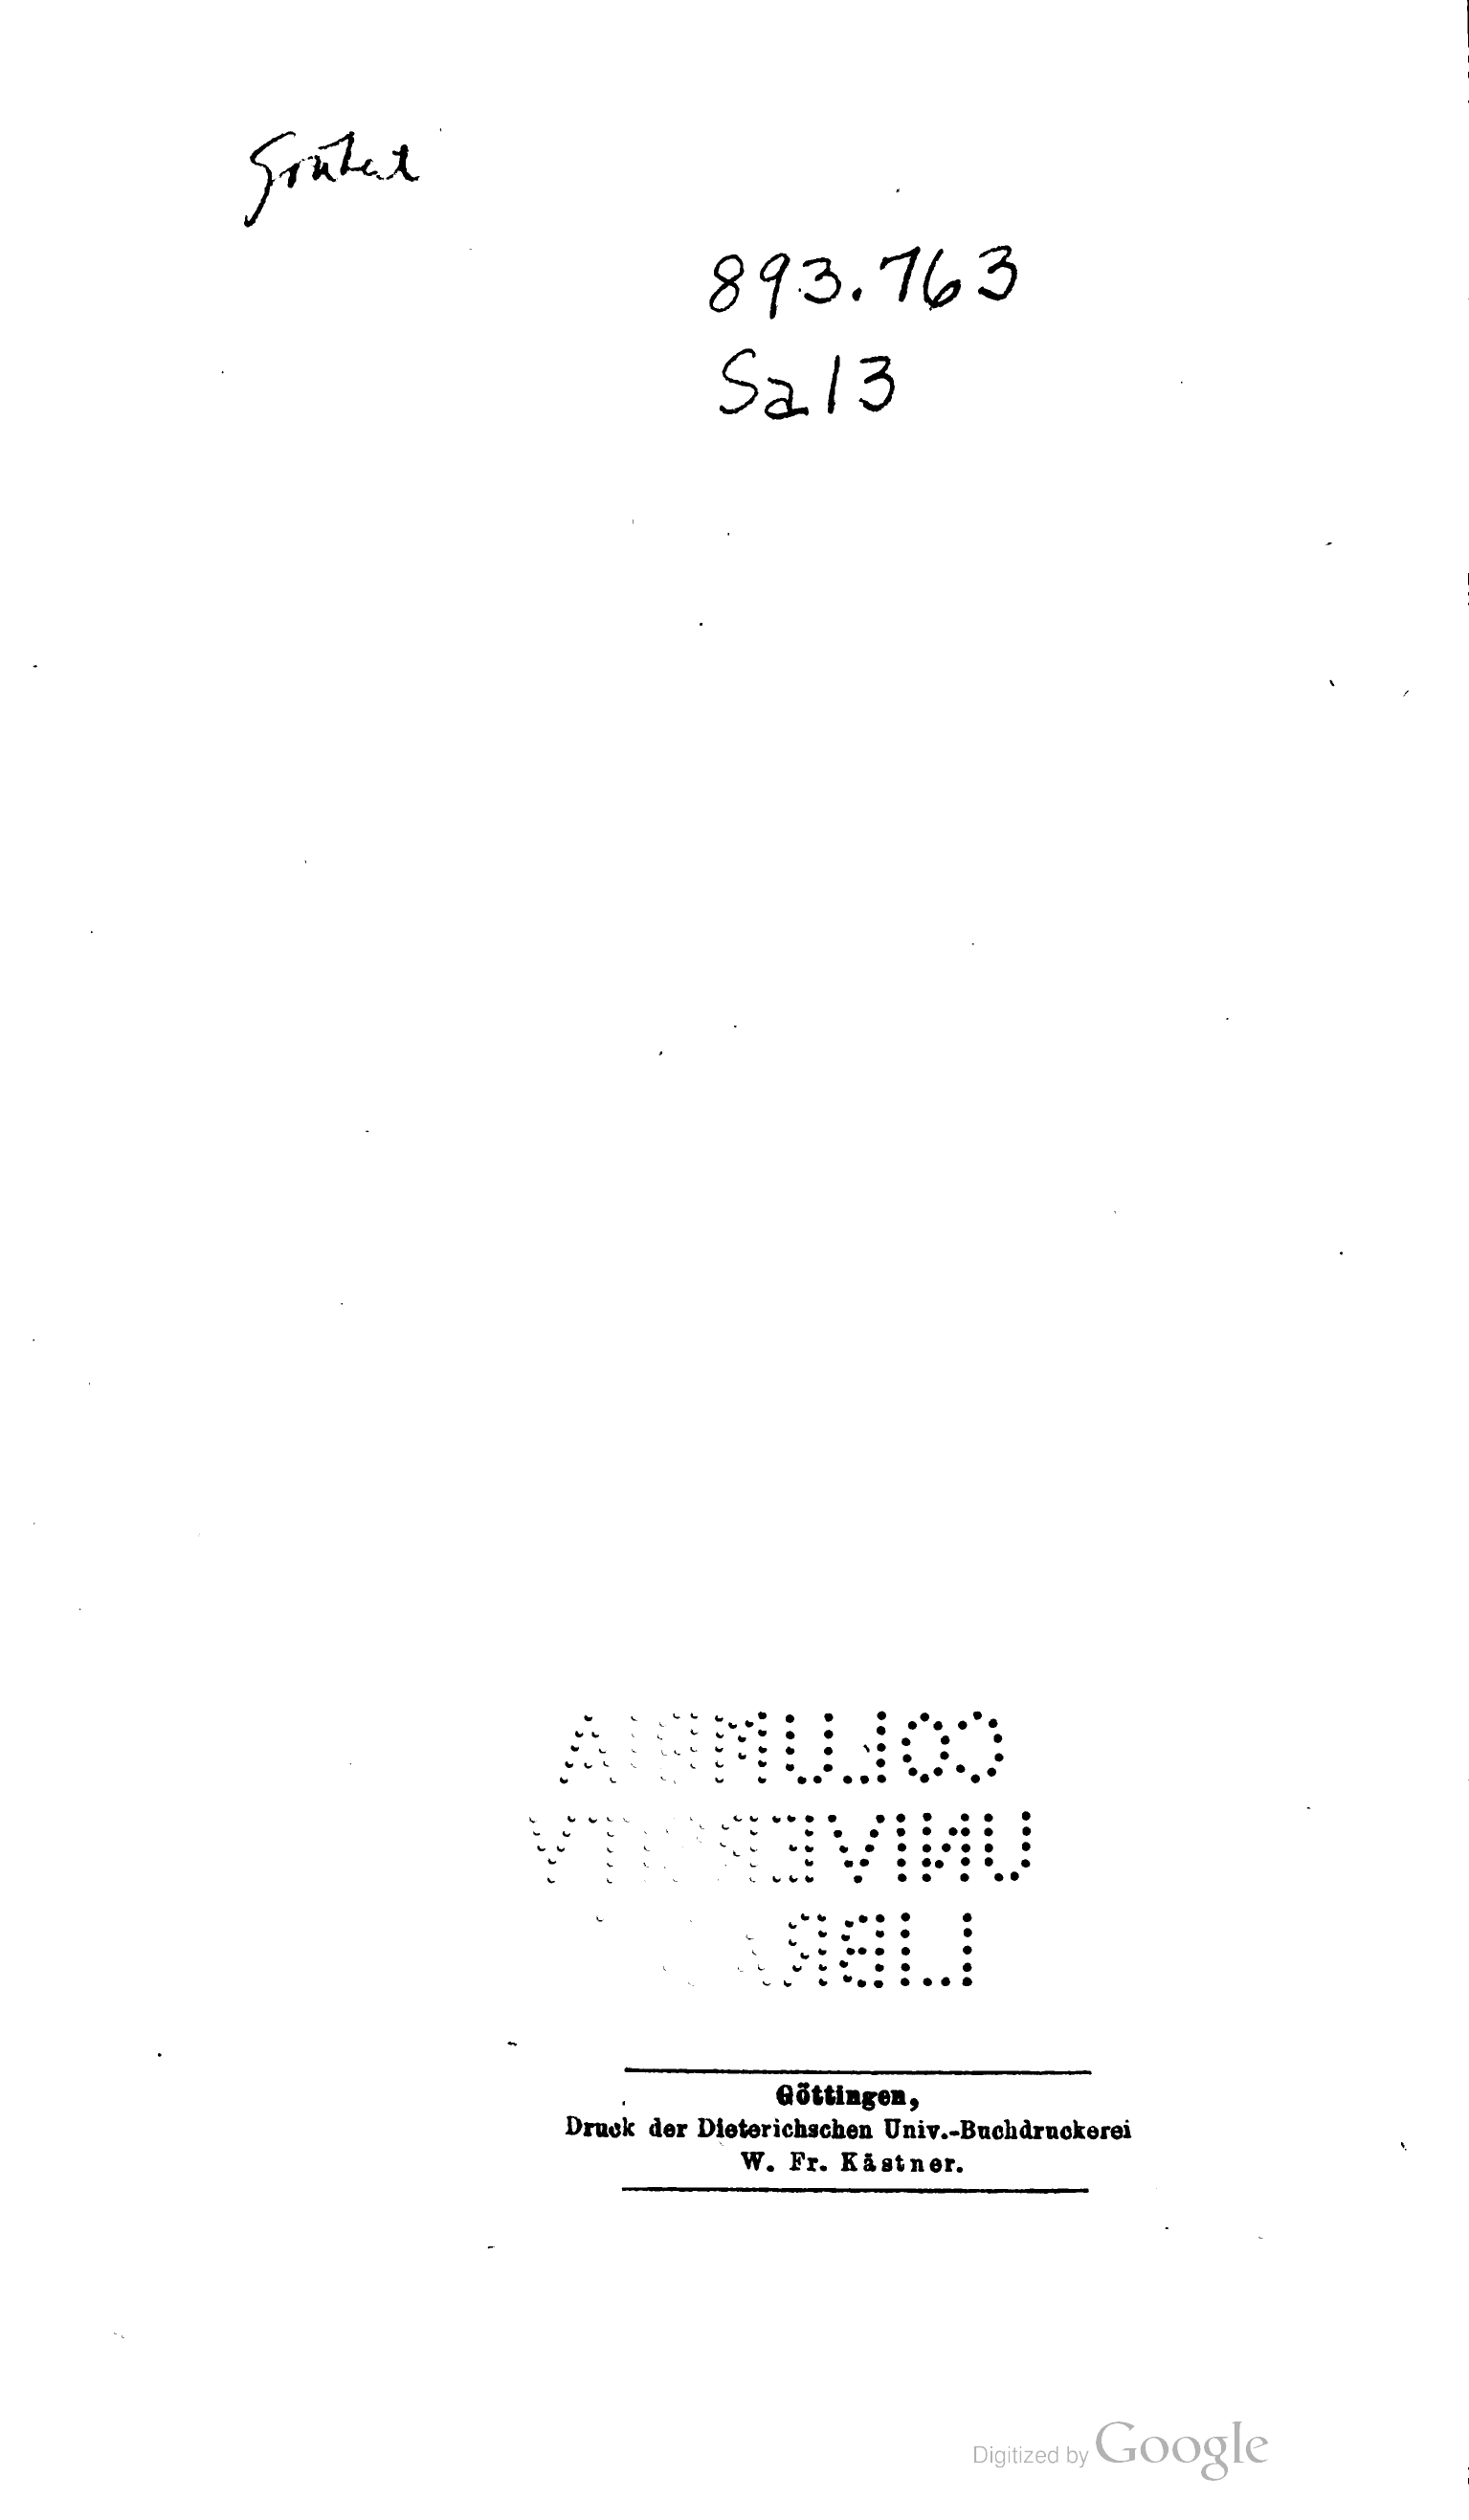 893.763
Sa13
COLUMBIA
UNIVERSITY
LIBRA
Göttingen,
Druck der Dieterichschen Univ.-Buchdruckerei
W. Fr. Kästner.
Digitized by Google